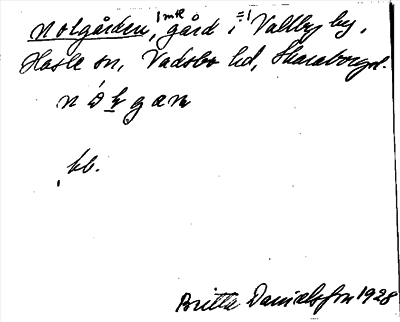 Nolgården, 1 mtl gård i Vallby by,
Hasle sn, Vadsbo hd, Skaraborgsl.
kb.
Britta Danielsson 1928